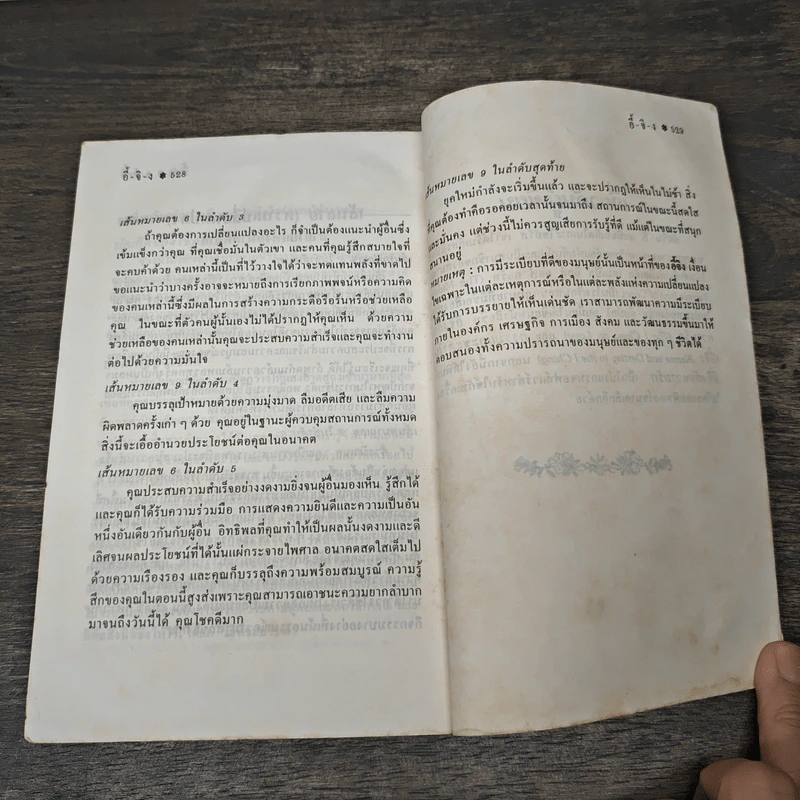 อี้-จิง ✱ 528
เส้นหมายเลข 6 ในลำดับ 3
ถ้าคุณต้องการเปลี่ยนแปลงอะไร ก็จำเป็นต้องแนะนำผู้อื่นซึ่ง
เข้มแข็งกว่าคุณ ที่คุณเชื่อมั่นในตัวเขา และคนที่คุณรู้สึกสบายใจที่
จะคบค้าด้วย คนเหล่านี้เป็นที่ไว้วางใจได้ว่าจะทดแทนพลังที่ขาดไป
ขอแนะนำว่าบางครั้งอาจจะหมายถึงการเรียกภาพพจน์หรือความคิด
ของคนเหล่านี้ซึ่งมีผลในการสร้างความกระตือรือร้นหรือช่วยเหลือ
คุณ ในขณะที่ตัวคนผู้นั้นเองไม่ได้ปรากฏให้คุณเห็น ด้วยความ
ช่วยเหลือของคนเหล่านั้นคุณจะประสบความสำเร็จและคุณจะทำงาน
ต่อไปด้วยความมั่นใจ
เส้นหมายเลข 9 ในลำดับ 4
คุณบรรลุเป้าหมายด้วยความมุ่งมาด ลืมอดีตเสีย และลืมความ
ผิดพลาดครั้งเก่า ๆ ด้วย คุณอยู่ในฐานะผู้ควบคุมสถานการณ์ทั้งหมด
สิ่งนี้จะเอื้ออำนวยประโยชน์ต่อคุณในอนาคต
เส้นหมายเลข 6 ในลำดับ 5
คุณประสบความสำเร็จอย่างงดงามยิ่งจนผู้อื่นมองเห็น รู้สึกได้
และคุณก็ได้รับความร่วมมือ การแสดงความยินดีและความเป็นอัน
หนึ่งอันเดียวกันกับผู้อื่น อิทธิพลที่คุณทำให้เป็นผลนั้นงดงามและดี
เลิศจนผลประโยชน์ที่ได้นั้นแผ่กระจายไพศาล อนาคตสดใสเต็มไป
ด้วยความเรืองรอง และคุณก็บรรลุถึงความพร้อมสมบูรณ์ ความรู้
สึกของคุณในตอนนี้สูงส่งเพราะคุณสามารถเอาชนะความยากลำบาก
มาจนถึงวันนี้ได้ คุณโชคดีมาก
อี้-จิ-ง ✱ 529
เส้นหมายเลข 9 ในลำดับสุดท้าย
ยุคใหม่กำลังจะเริ่มขึ้นแล้ว และจะปรากฏให้เห็นในไม่ช้า สิ่ง
ที่คุณต้องทำคือรอคอยเวลานั้นจนมาถึง สถานการณ์ในขณะนี้สดใส
และมั่นคง แต่ช่วงนี้ไม่ควรสูญเสียการรับรู้ที่ดี แม้แต่ในขณะที่สนุก
สนานอยู่
หมายเหตุ : การมีระเบียบที่ดีของมนุษย์นั้นเป็นหน้าที่ของอี้จิง เงื่อน
ไขเฉพาะในแต่ละเหตุการณ์หรือในแต่ละพลังแห่งความเปลี่ยนแปลง
ได้รับการบรรยายให้เห็นเด่นชัด เราสามารถพัฒนาความมีระเบียบ
ภายในองค์กร เศรษฐกิจ การเมือง สังคม และวัฒนธรรมขึ้นมาให้
ตอบสนองทั้งความปรารถนาของมนุษย์และของทุก ๆ ชีวิตได้